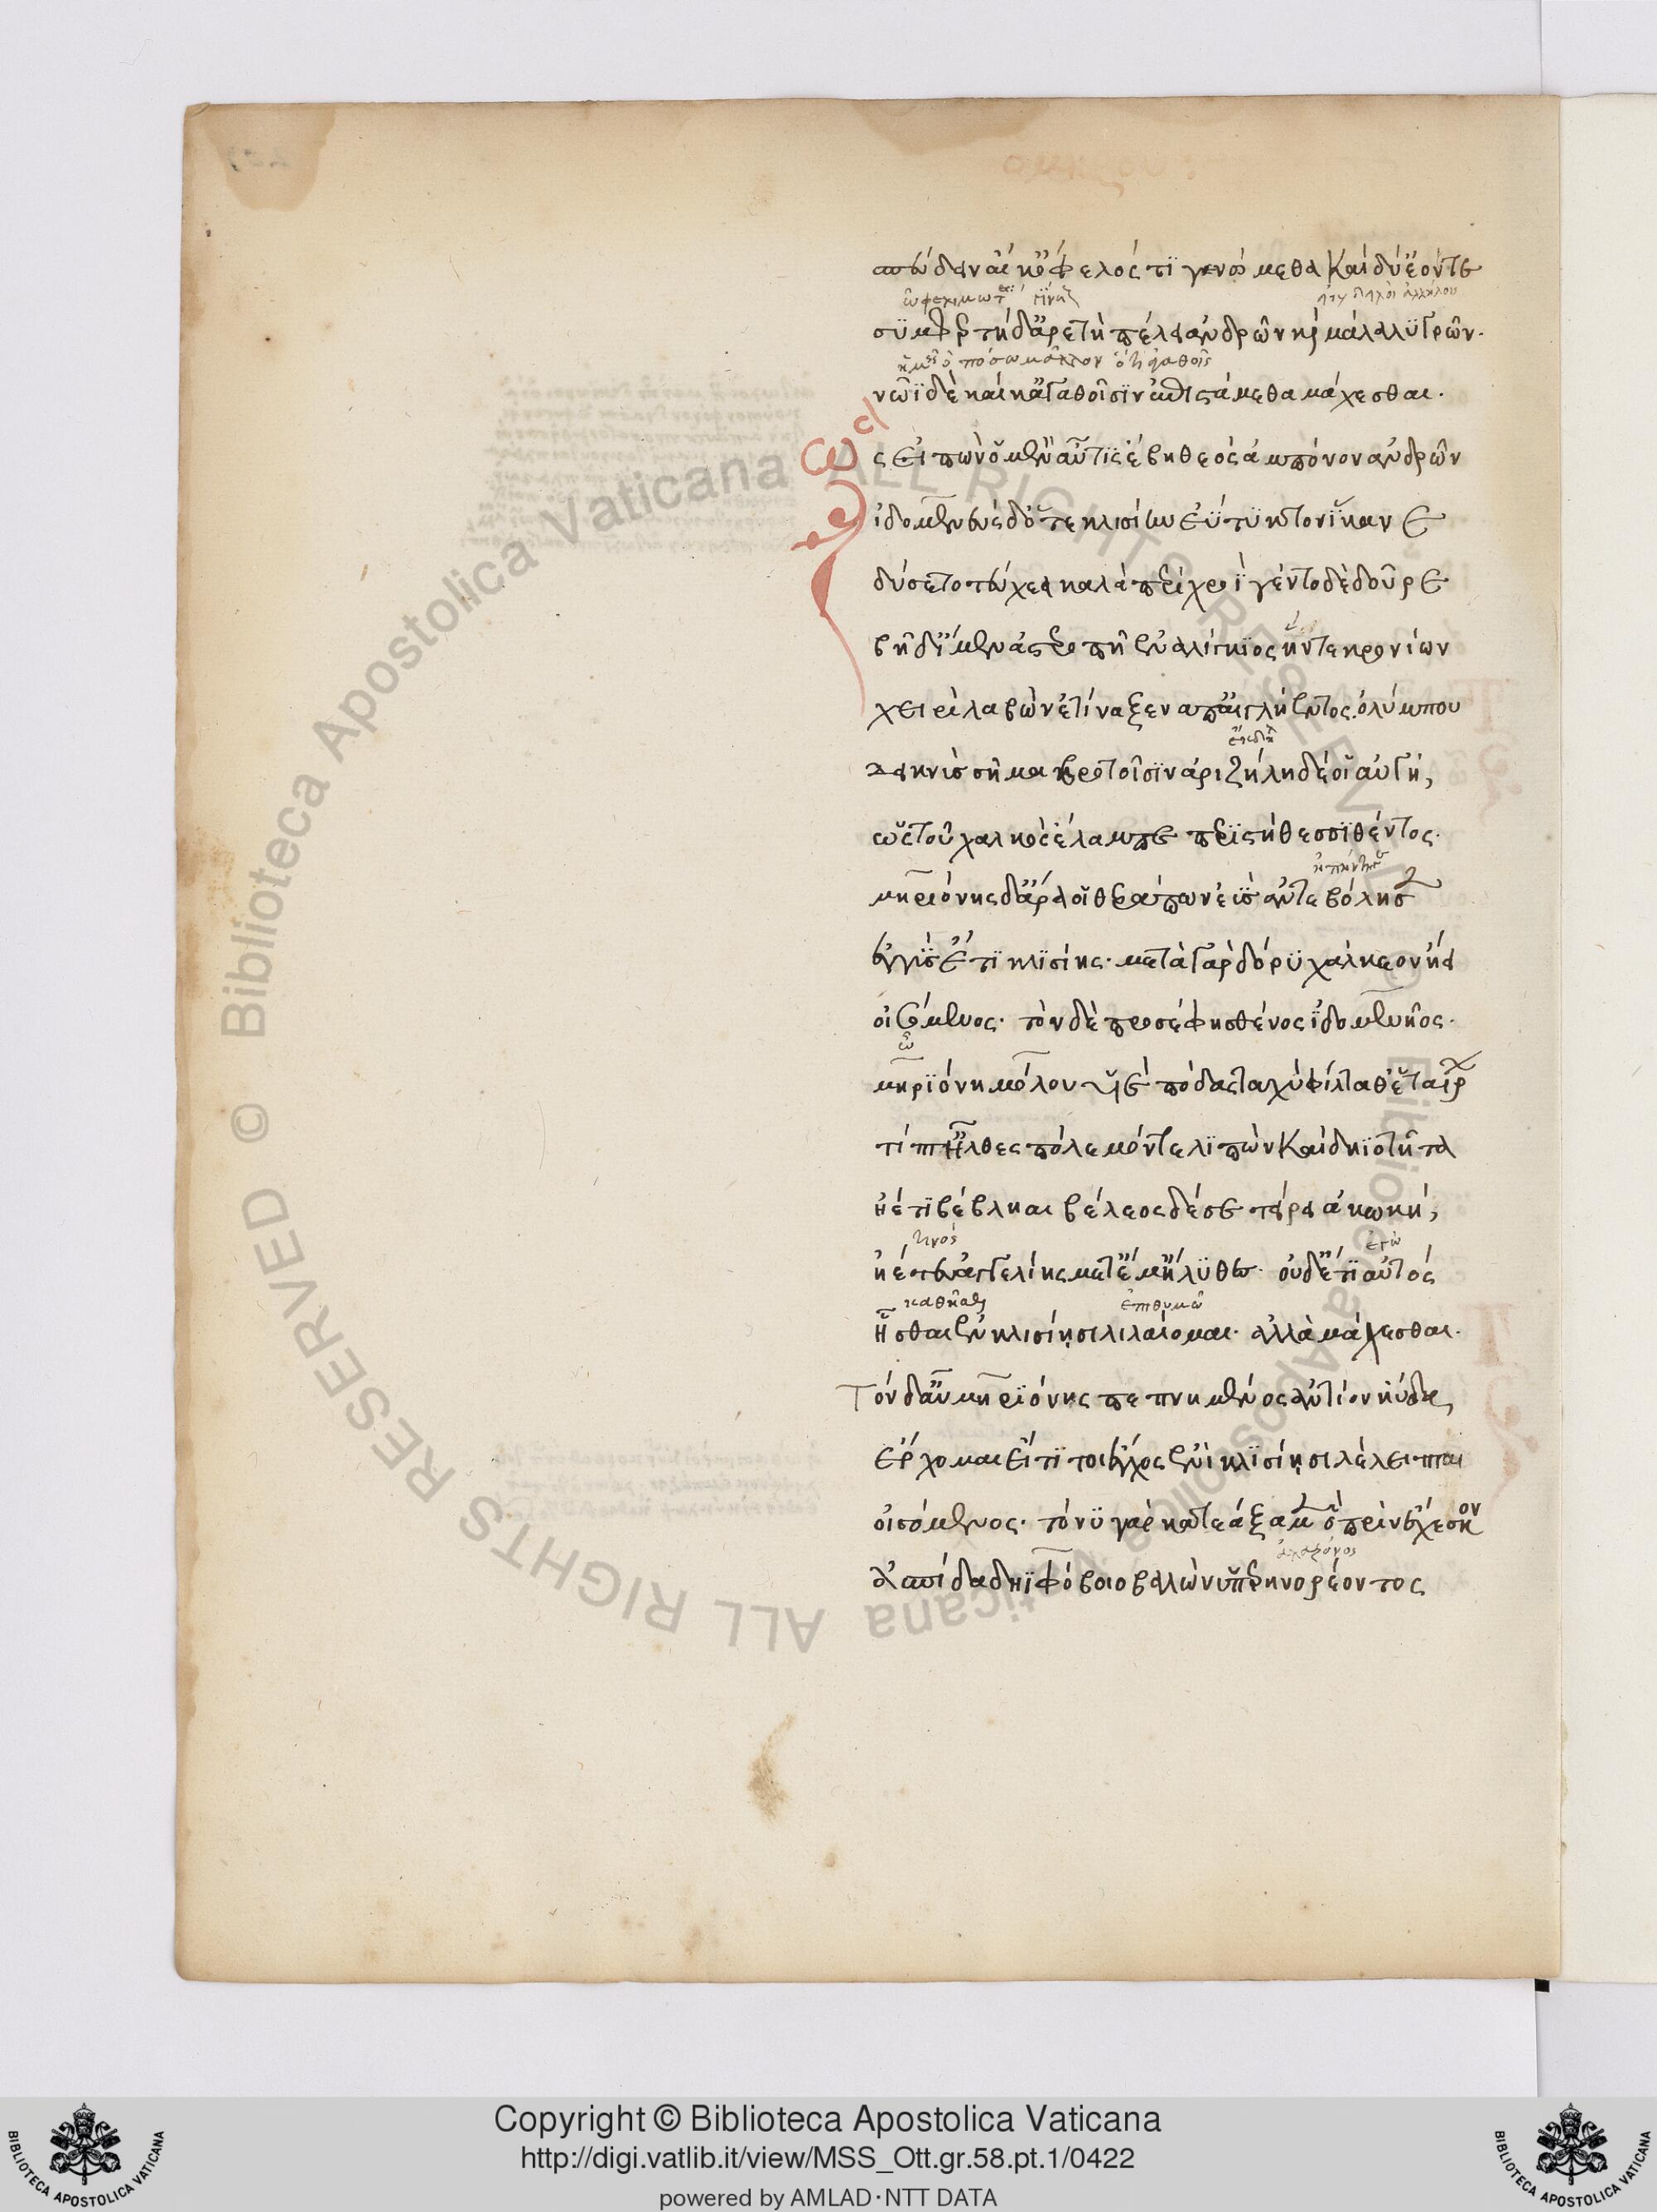 σπεύδειν αἴ κ' ὄφελός τι γενώμεθα καὶ δύ' ἐόντε
συμφερτὴ δ' ἀρετὴ πέλει ἀνδρῶν καὶ μάλα λυγρῶν.
νῶϊ δὲ καί κ' ἀγαθοῖσιν ἐπιστάμεθα μάχεσθαι.
ὣς εἰπὼν ὃ μὲν αὖτις ἔβη θεὸς ἂμ πόνον ἀνδρῶν
ἰδομενεὺς δ' ὅτε κλισίην εὔτυκτον ἵκανε
δύσετο τεύχεα καλὰ περὶ χροῒ γέντο δὲ δοῦρε
βῆ δ' ἴμεν ἀστεροπῇ ἐναλίγκιος ἥν τε κρονίων
χειρὶ λαβὼν ἐτίναξεν ἀπ' αἰγλήεντος ὀλύμπου
δεικνὺς σῆμα βροτοῖσιν ἀρίζηλη δέ οἱ αὐγή,
ὣς τοῦ χαλκὸς ἔλαμπε περὶ στήθεσσι θέοντος.
μηριόνης δ' ἄρα οἱ θεράπων ἐῢς ἀντεβόλησεν
ἐγγὺς ἔτι κλισίης· μετὰ γὰρ δόρυ χάλκεον ᾔει
οἰσόμενος· τὸν δὲ προσέφη σθένος ἰδομενῆος.
ὦ
μηριόνη μόλου υἱὲ πόδας ταχὺ φίλταθ' ἑταίρων
τίπτ' ἦλθες πόλεμόν τε λιπὼν καὶ δηϊοτῆτα
ἠέ τι βέβληαι βέλεος δέ σε τείρει ἀκωκή,
τινός
ἐγὼ
ἠέ τευ ἀγγελίης μετ' ἔμ' ἤλυθες· οὐδέ τι αὐτός
καθῆσθαι
ἐπιθυμῶ
ἧσθαι ἐνὶ κλισίῃσι λιλαίομαι· ἀλλὰ μάχεσθαι.
Τὸν δ' αὖ μηριόνης πεπνυμένος ἀντίον ηὔδα,
ἔρχομαι εἴ τί τοι ἔγχος ἐνὶ κλισίῃσι λέλειπται
οἰσόμενος· τό νυ γὰρ κατεάξαμεν ὃ πρὶν ἔχεσκον
ἀσπίδα δηϊφόβοιο βαλὼν ὑπερηνορέοντος
Copyright © Biblioteca Apostolica Vaticana
http://digi.vatlib.it/view/MSS_Ott.gr.58.pt.1/0422
powered by AMLAD·NTT DATA